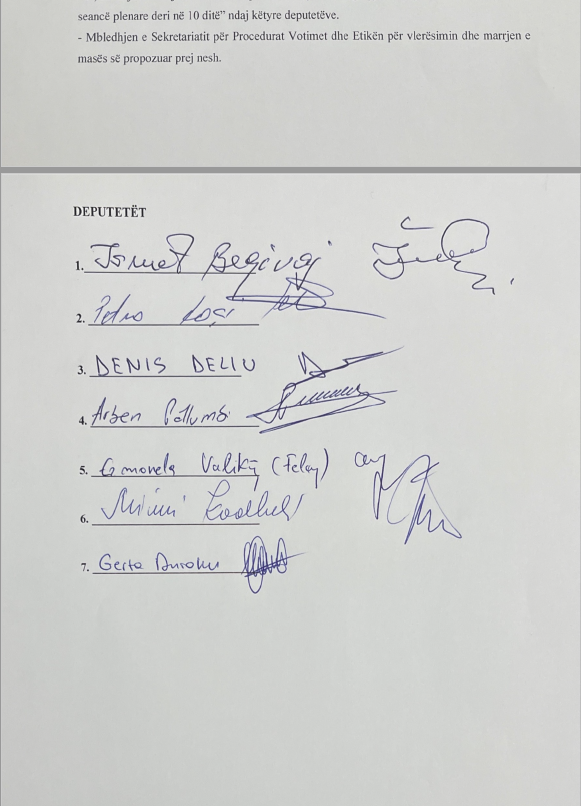 seancë plenare deri në 10 ditë” ndaj këtyre deputetëve.
- Mbledhjen e Sekretariatit për Procedurat Votimet dhe Etikën për vlerësimin dhe marrjen e
masës së propozuar prej nesh.
DEPUTETËT
1. Ismet Beqiraj
2.
3. DENIS DELIU
4. Arben
5. (Felaj)
6. Mimi Kodheli
7. Gerta Duraku